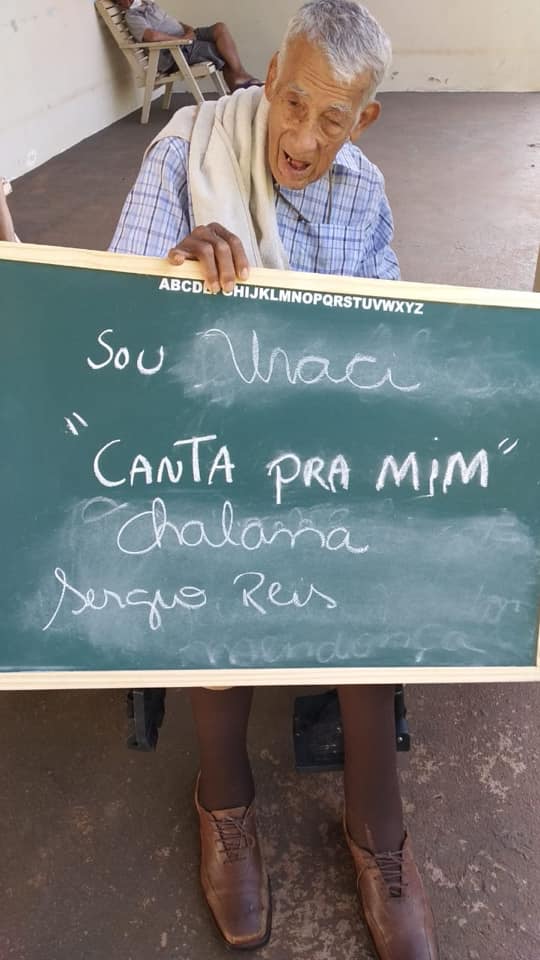 ABCDEFGHIJKLMNOPQRSTUVWXYZ
Sou Uraci
"CANTA PRA MiM"
Chalana
Sergio Reis
mendonça